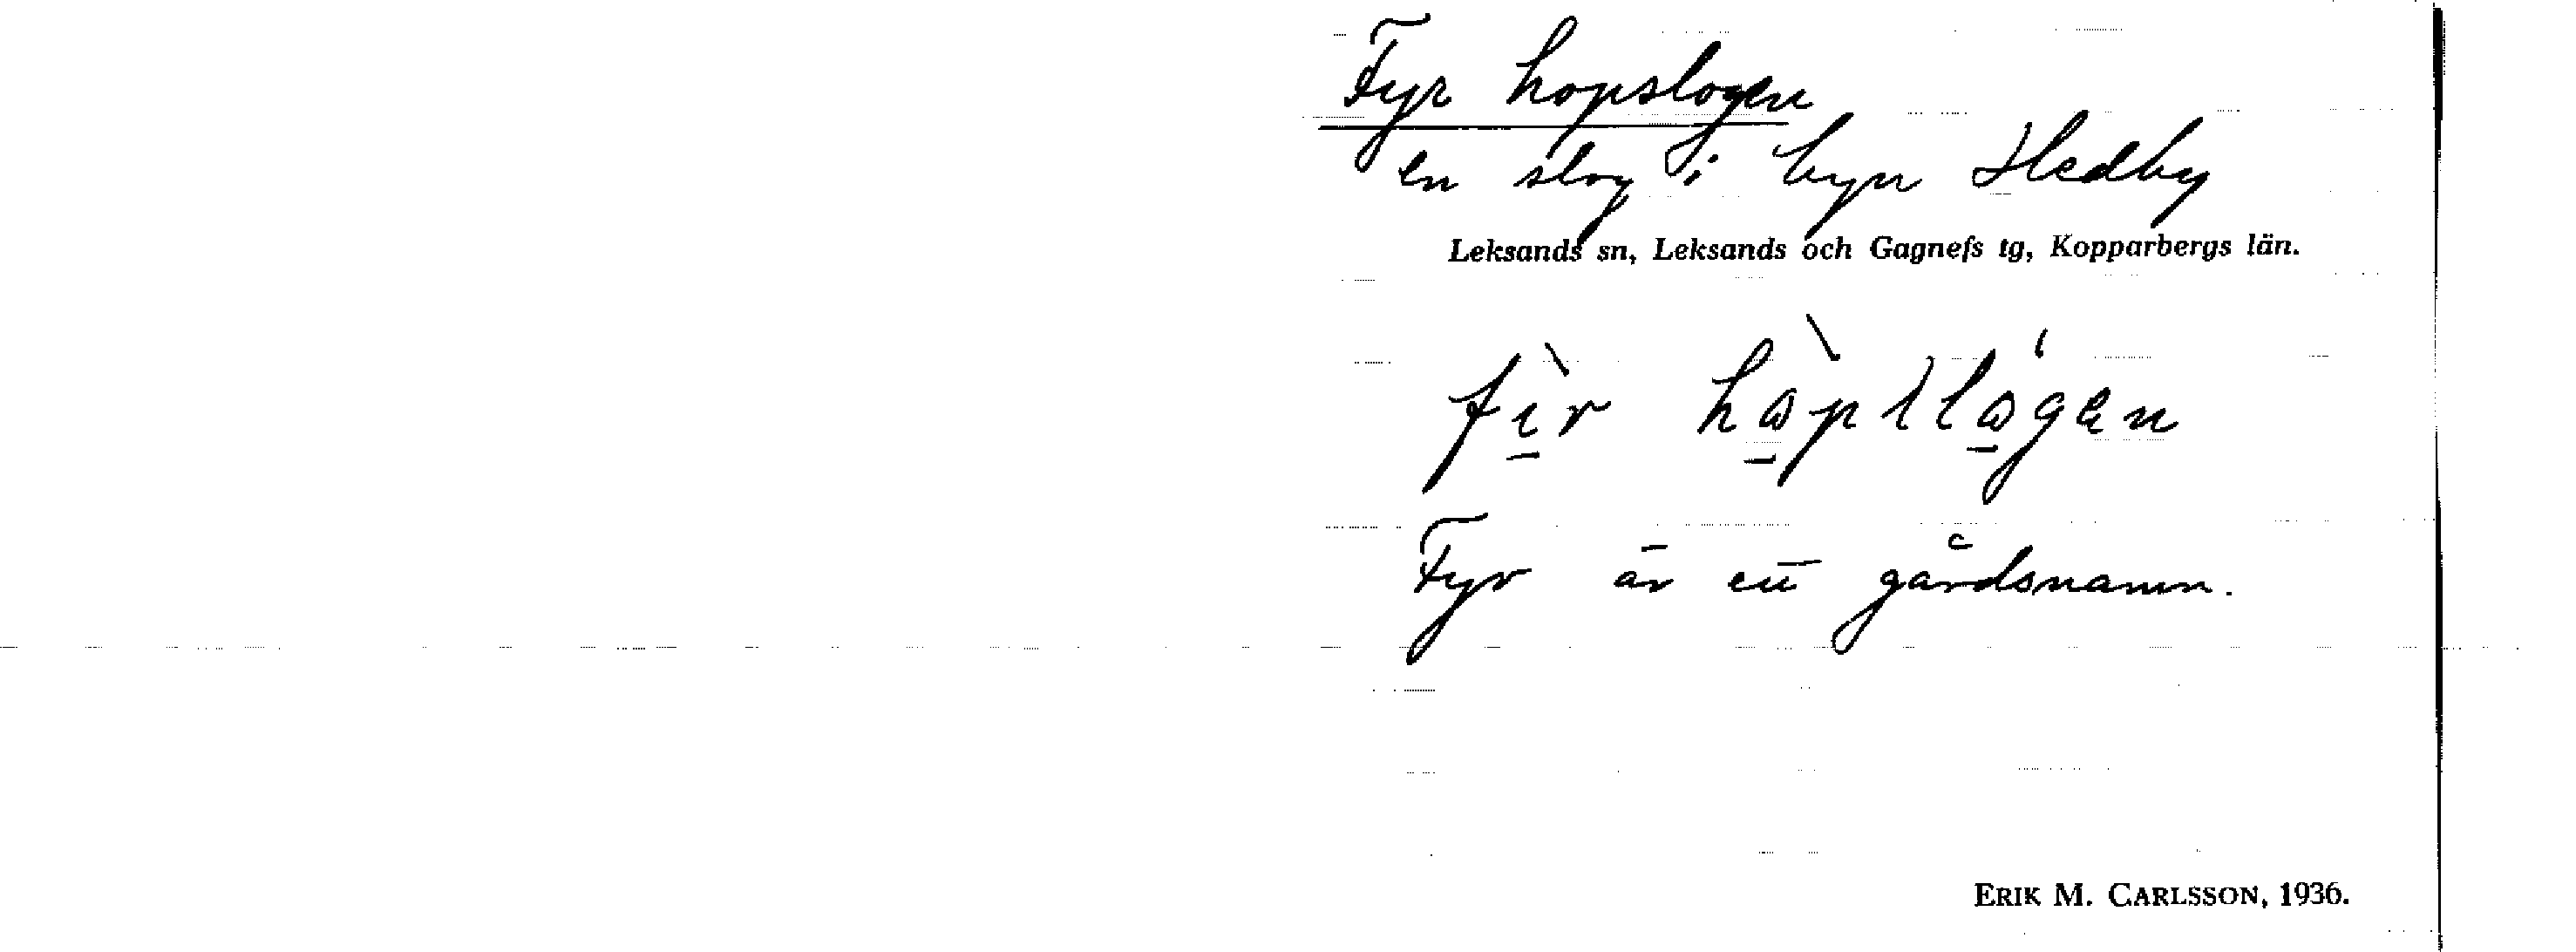 Fyr hopslogen
en slog i byn Hedby
Leksands sn, Leksands och Gagnefs tg, Kopparbergs län.
fı̱̀r hɷ̱̀pslɷ̱́gən
Fyr är ett gårdsnamn.
ERIK M. CARLSSON, 1936.